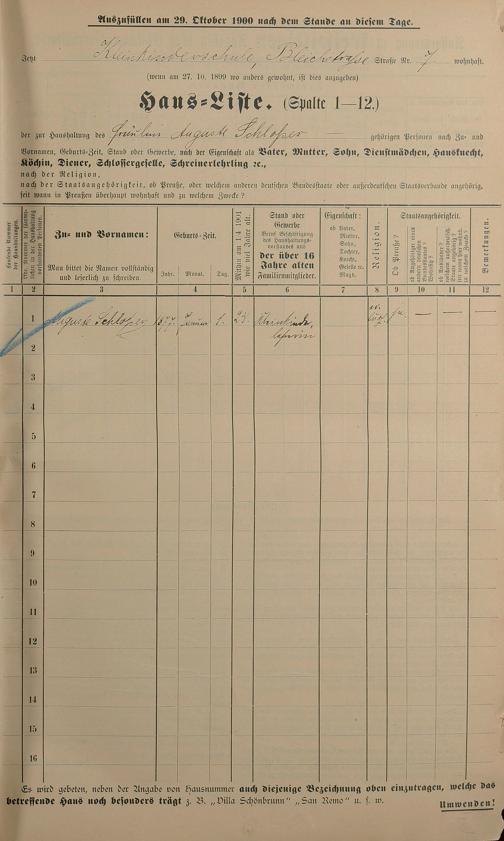 Auszufüllen am 29. Oktober 1900 nach dem Stande an diesem Tage.
Jetzt Kleinkinderschule, Bleichstraße Straße Nr. 7 wohnhaft.
(wenn am 27. 10. 1899 wo anders gewohnt, ist dies anzugeben)
Haus-Liste. (Spalte 1—12.)
der zur Haushaltung des Fräulein Auguste Schlosser gehörigen Personen nach Zu- und
Vornamen, Geburts-Zeit, Stand oder Gewerbe, nach der Eigenschaft als Vater, Mutter, Sohn, Dienstmädchen, Hausknecht,
Köchin, Diener, Schlossergeselle, Schreinerlehrling ꝛc.,
nach der Religion,
nach der Staatsangehörigkeit, ob Preuße, oder welchem anderen deutschen Bundesstaate oder außerdeutschen Staatsverbande angehörig,
seit wann in Preußen überhaupt wohnhaft und zu welchem Zwecke?
Zu- und Vornamen:
Man bittet die Namen vollständig
und leserlich zu schreiben.
Geburts-Zeit.
Jahr. Monat. Tag.
Mithin am 1.4 1901
wie viel Jahre alt.
Stand oder
Gewerbe
Beruf Beschäftigung
des Haushaltungs-
vorstandes und
der über 16
Jahre alten
Familienmitglieder.
Eigenschaft:
ob Vater,
Mutter,
Sohn,
Tochter,
Koch,
Geselle ꝛc.
Magd.
Religion.
Staatsangehörigkeit.
Ob Preuße?
Bemerkungen.
1 2 3 4 5 6 7 8 9 10 11 12
1 Auguste Schlosser 1877. Januar 1. 23. Kleinkinder- ev. ja. — — —
lehrerin
2
3
4
5
6
7
8
9
10
11
12
13
14
15
16
Es wird gebeten, neben der Angabe von Hausnummer auch diejenige Bezeichnung oben einzutragen, welche das
betreffende Haus noch besonders trägt z. B. „Villa Schönbrunn" „San Remo" u. s. w.
Umwenden!